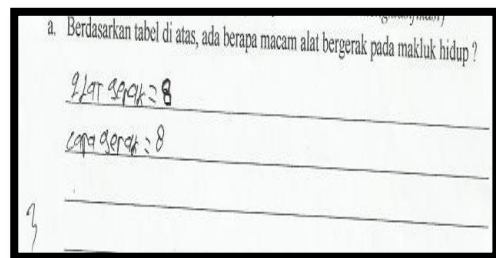 a. Berdasarkan tabel di atas, ada berapa macam alat bergerak pada makluk hidup ?
alat gerak = 8
cara gerak : 8